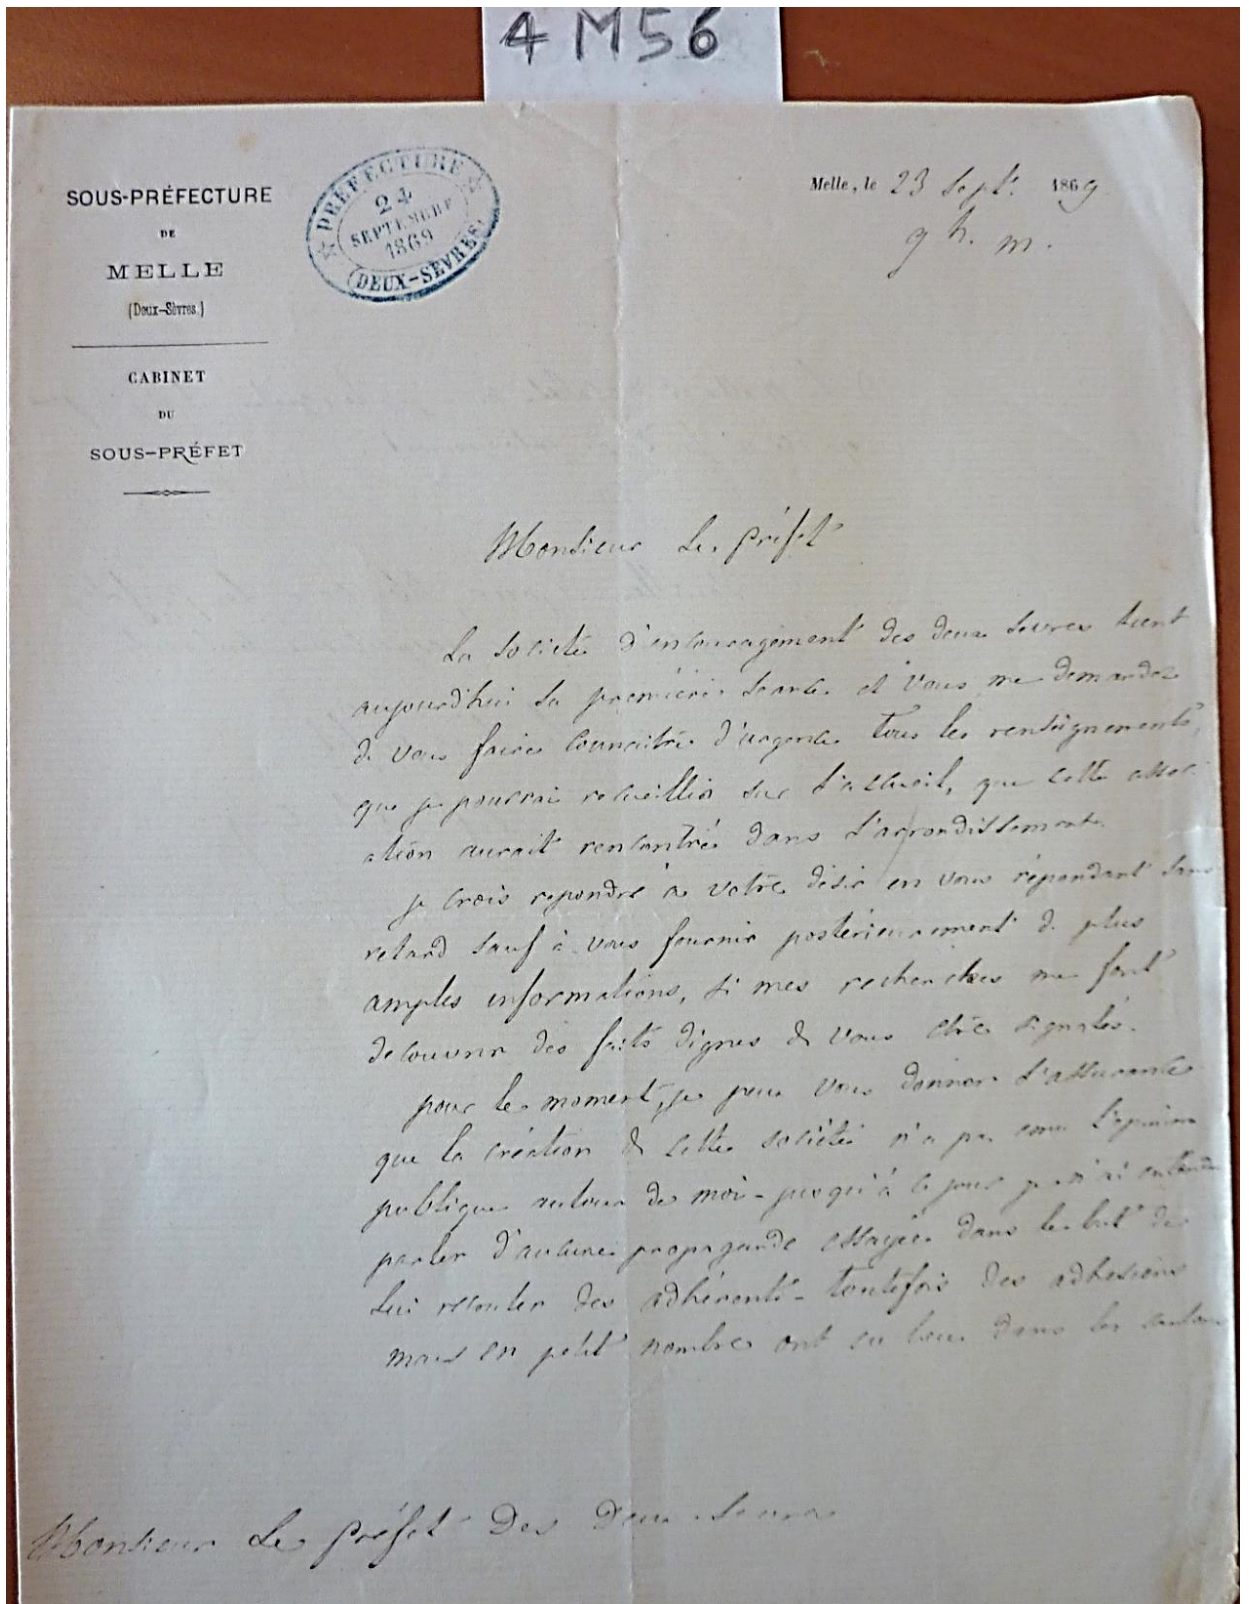 4 M 56
SOUS-PRÉFECTURE
DE
MELLE
(Deux-Sèvres.)
CABINET
DU
SOUS-PRÉFET
PRÉFECTURE
24
SEPTEMBRE
1869
(DEUX-SÈVRES)
Melle, le 23 Sept. 1869
9 h. m.
Monsieur Le Préfet
La Société d'encouragement des deux Sevres tient
aujourd'hui sa première séance et vous me demandez
de vous faire connaitre d'urgence tous les renseignements,
que je pourrai recueillir sur l'accueil, que cette associ
ation aurait rencontré dans l'arrondissement.
je crois repondre à votre désir en vous répondant sans
retard sauf à vous fournir postérieurement de plus
amples informations, si mes recherches me font
decouvrir des faits dignes de vous être signalés.
pour le moment, je peux vous donner l'assurance
que la création de cette société n'a pas ému l'opinion
publique autour de moi - jusqu'à ce jour je n'ai entendu
parler d'aucune propagande essayée dans le but de
lui recruter des adhérents - toutefois des adhesions
mais en petit nombre ont eu lieu dans les cantons
Monsieur Le Préfet Des Deux Sevres